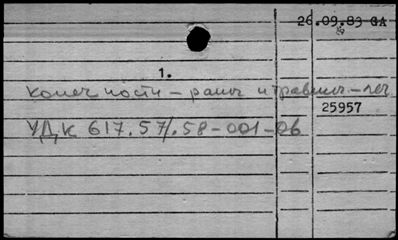 26.09.83 GA
1.
конечности – раны и травмы – леч
25957
УДК 617.57/.58-001-06